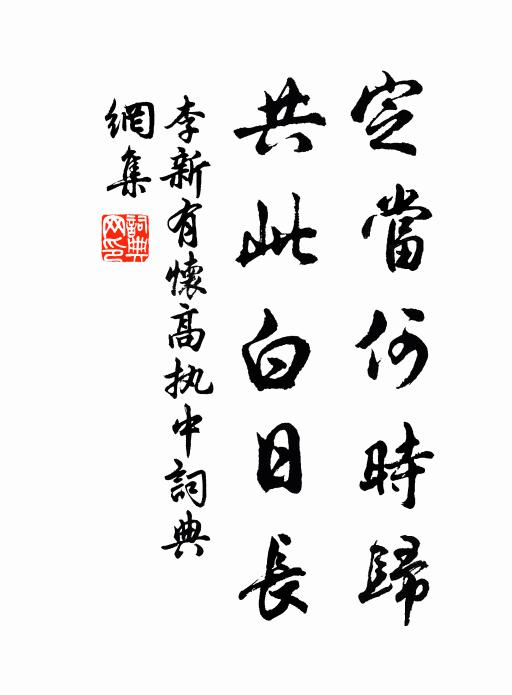 定當何時歸
共此白日長
李新有懷高执中詞典
網集
詞典
网印